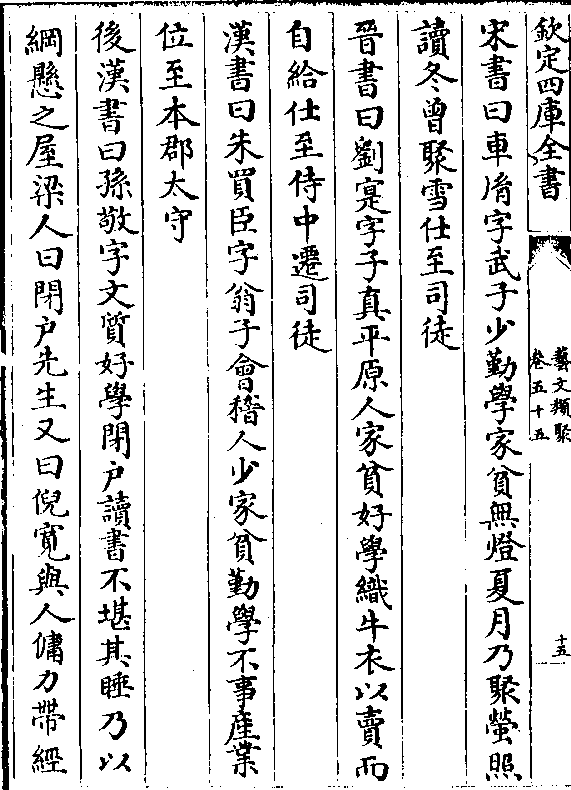 欽定四庫全書
藝文類聚
卷五十五
十五
宋書曰車𦙍字武子少勤學家貧無燈夏月乃聚螢照
讀冬曾聚雪仕至司徒
晉書曰劉寔字子真平原人家貧好學織牛衣以賣而
自給仕至侍中遷司徒
漢書曰朱買臣字翁子會稽人少家貧勤學不事產業
位至本郡太守
後漢書曰孫敬字文質好學閉户讀書不堪其睡乃以
綱懸之屋梁人曰閉户先生又曰倪寬與人傭力帶經